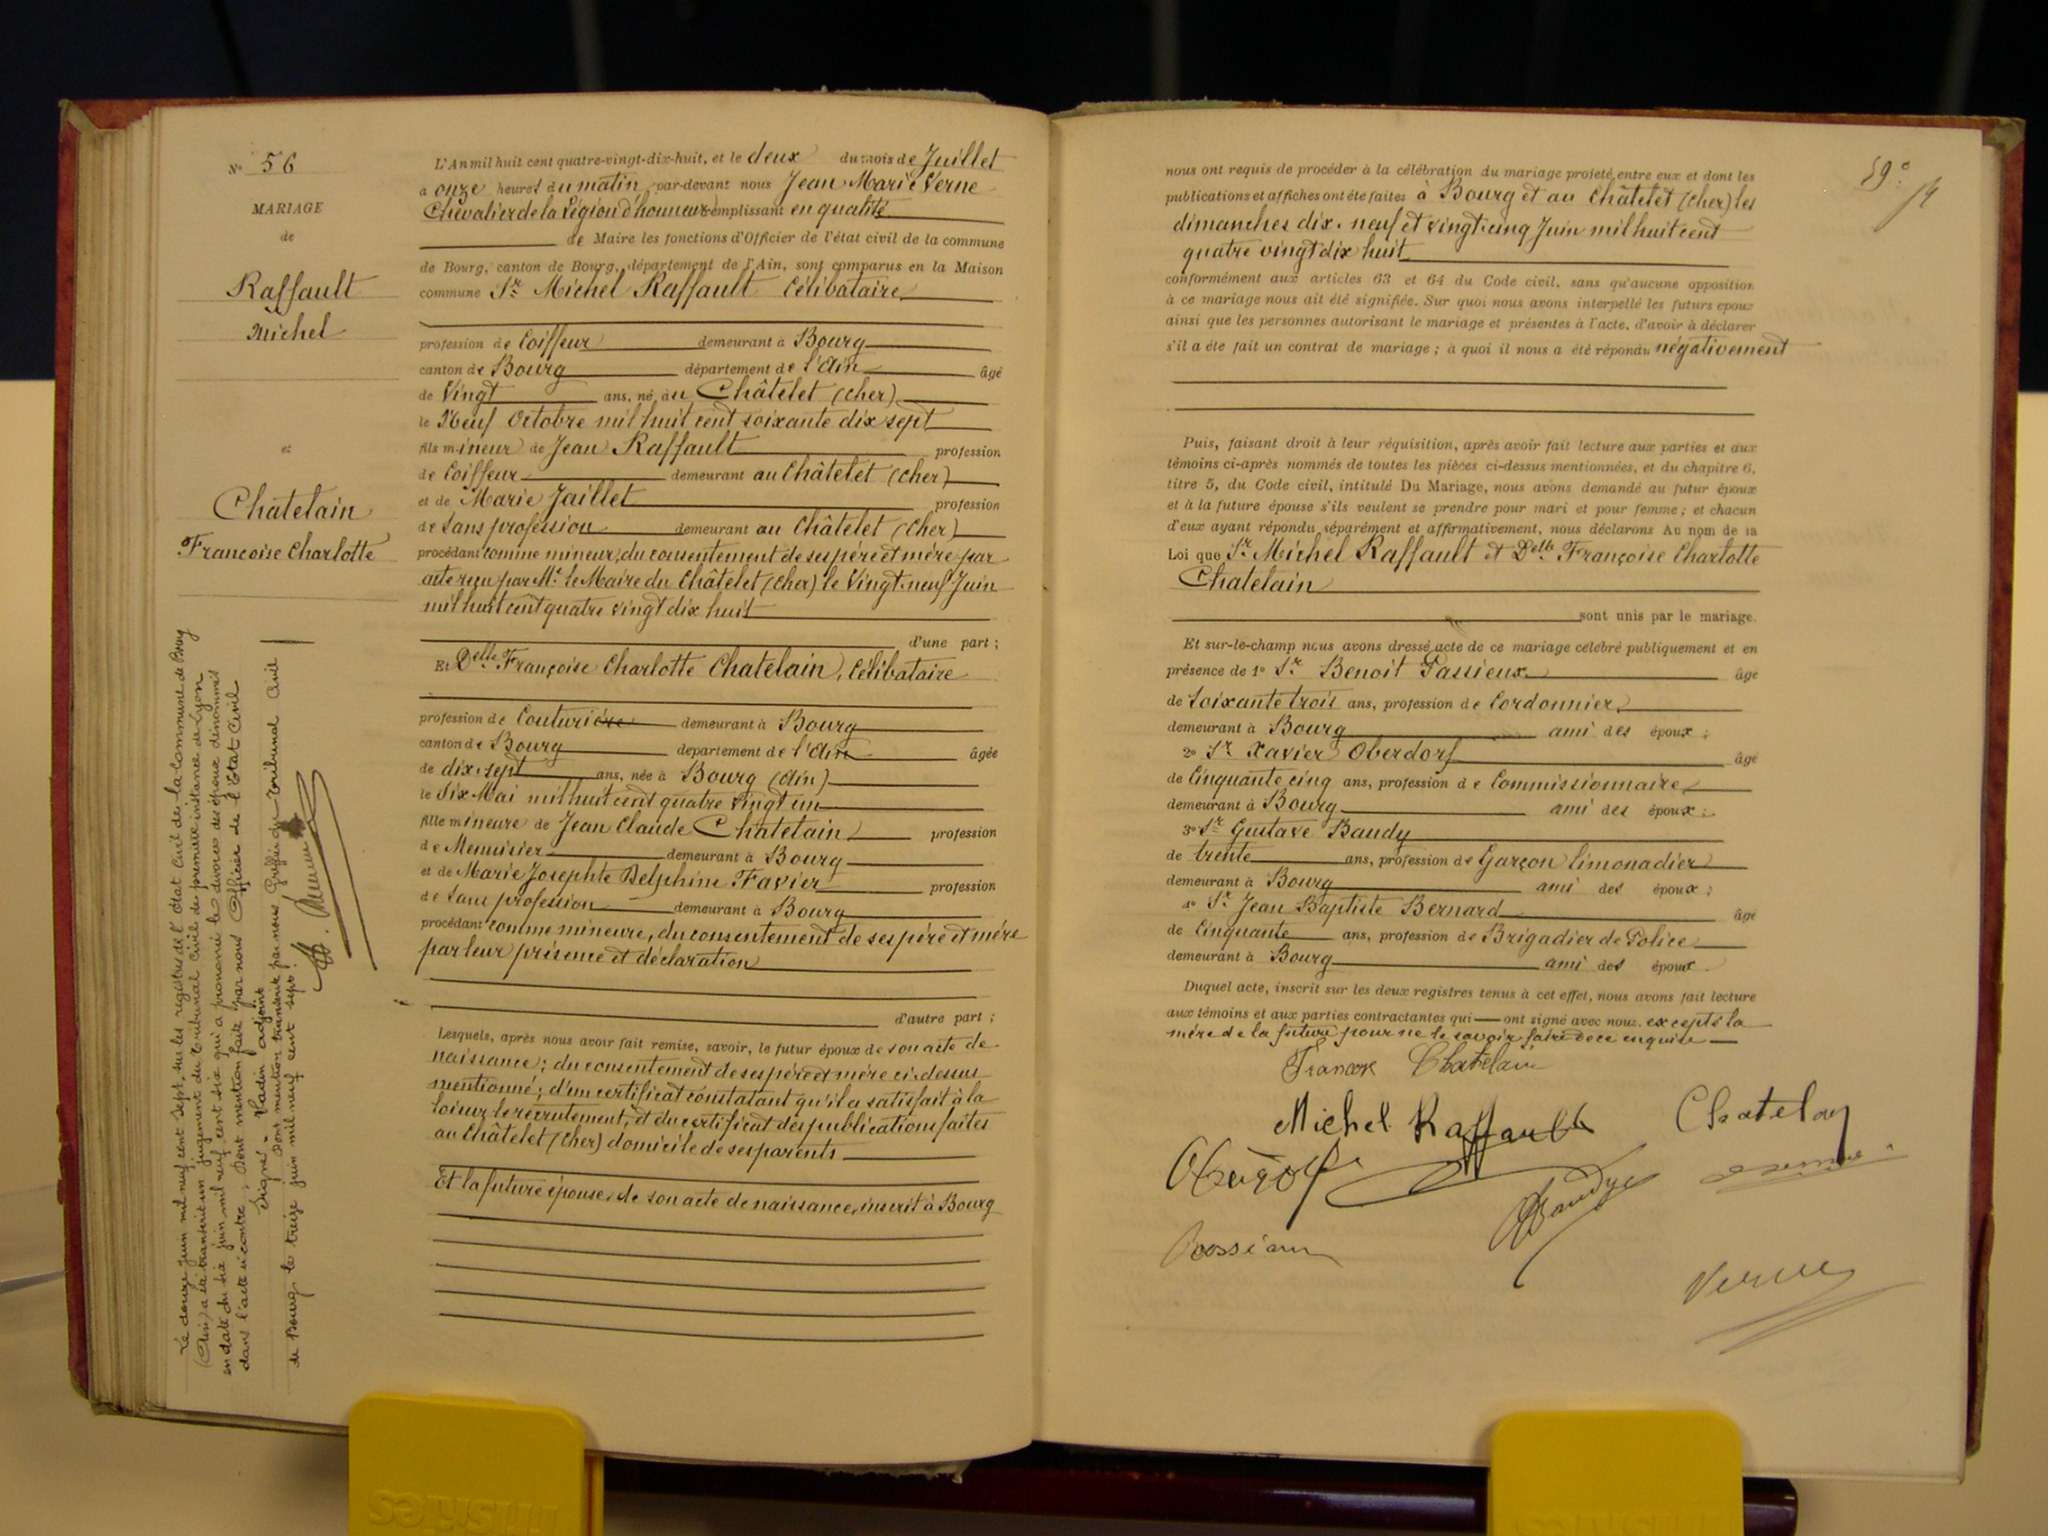 N° 56
MARIAGE
de
Raffault
Michel
et
Chatelain
Françoise Charlotte
Le douze juin mil neuf cent sept, sur les registres de l'État Civil de la Commune de Bourg
(Ain) a été transcrit un jugement du Tribunal Civil de première instance de Lyon
en date du six juin mil neuf cent six qui a prononcé le divorce des époux dénommés
dans l'acte ci contre, Dont mention faite par nous Officier de l'État Civil
Signé: adjoint
Dont mention transcrite par nous Greffier du Tribunal Civil
de Bourg le treize juin mil neuf cent sept.
L'An mil huit cent quatre-vingt-dix-huit, et le deux du mois de Juillet
a onze heures du matin, par-devant nous Jean Marie Verne
Chevalier de la Légion d'honneur remplissant en qualité
de Maire les fonctions d'Officier de l'état civil de la commune
de Bourg, canton de Bourg, département de l'Ain, sont comparus en la Maison
commune Sr Michel Raffault Célibataire
profession de Coiffeur demeurant à Bourg
canton de Bourg département de l'Ain âgé
de Vingt ans, né au Châtelet (Cher)
le Neuf Octobre mil huit cent soixante dix sept
fils mineur de Jean Raffault profession
de Coiffeur demeurant au Châtelet (Cher)
et de Marie Jaillet profession
de Sans profession demeurant au Châtelet (Cher)
procédant comme mineur, du consentement de ses père et mère par
acte reçu par Mr le Maire du Châtelet (Cher) le Vingt-neuf Juin
mil huit cent quatre vingt dix huit
d'une part ;
Et Delle Françoise Charlotte Chatelain, Célibataire
profession de Couturière demeurant à Bourg
canton de Bourg département de l'Ain âgée
de dix-sept ans, née à Bourg (Ain)
le Six Mai mil huit cent quatre vingt un
fille mineure de Jean Claude Chatelain profession
de Menuisier demeurant à Bourg
et de Marie Josephte Delphine Favier profession
de Sans profession demeurant à Bourg
procédant comme mineure, du consentement de ses père et mère
par leur présence et déclaration
d'autre part ;
Lesquels, après nous avoir fait remise, savoir, le futur époux de son acte de
naissance; du consentement de ses père et mère ci-dessus
mentionné; d'un certificat constatant qu'il a satisfait à la
loi sur le recrutement, et du certificat des publications faites
au Châtelet (Cher) domicile de ses parents
Et la future épouse, de son acte de naissance, inscrit à Bourg
59e
nous ont requis de procéder à la célébration du mariage projeté entre eux et dont les
publications et affiches ont été faites à Bourg et au Châtelet (Cher) les
dimanches dix-neuf et vingt-cinq Juin mil huit cent
quatre vingt dix huit
conformément aux articles 63 et 64 du Code civil, sans qu'aucune opposition
à ce mariage nous ait été signifiée. Sur quoi nous avons interpellé les futurs époux
ainsi que les personnes autorisant le mariage et présentes à l'acte, d'avoir à déclarer
s'il a été fait un contrat de mariage ; à quoi il nous a été répondu négativement
Puis, faisant droit à leur réquisition, après avoir fait lecture aux parties et aux
témoins ci-après nommés de toutes les pièces ci-dessus mentionnées, et du chapitre 6,
titre 5, du Code civil, intitulé Du Mariage, nous avons demandé au futur époux
et à la future épouse s'ils veulent se prendre pour mari et pour femme ; et chacun
d'eux ayant répondu séparément et affirmativement, nous déclarons Au nom de la
Loi que Sr Michel Raffault et Delle Françoise Charlotte
Chatelain
sont unis par le mariage.
Et sur-le-champ nous avons dressé acte de ce mariage célébré publiquement et en
présence de 1° Sr Benoit Passieux âgé
de Soixante trois ans, profession de Cordonnier
demeurant à Bourg ami des époux ;
2° Sr Xavier Oberdorf âgé
de Cinquante cinq ans, profession de Commissionnaire
demeurant à Bourg ami des époux ;
3° Sr Gustave Baudy
de trente ans, profession de Garçon limonadier
demeurant à Bourg ami des époux ;
4° Sr Jean Baptiste Bernard âgé
de Cinquante ans, profession de Brigadier de Police
demeurant à Bourg ami des époux.
Duquel acte, inscrit sur les deux registres tenus à cet effet, nous avons fait lecture
aux témoins et aux parties contractantes qui ont signé avec nous, excepté la
mère de la future pour ne le savoir faire de ce enquise
Chatelain
Michel Raffault Chatelain
Verne